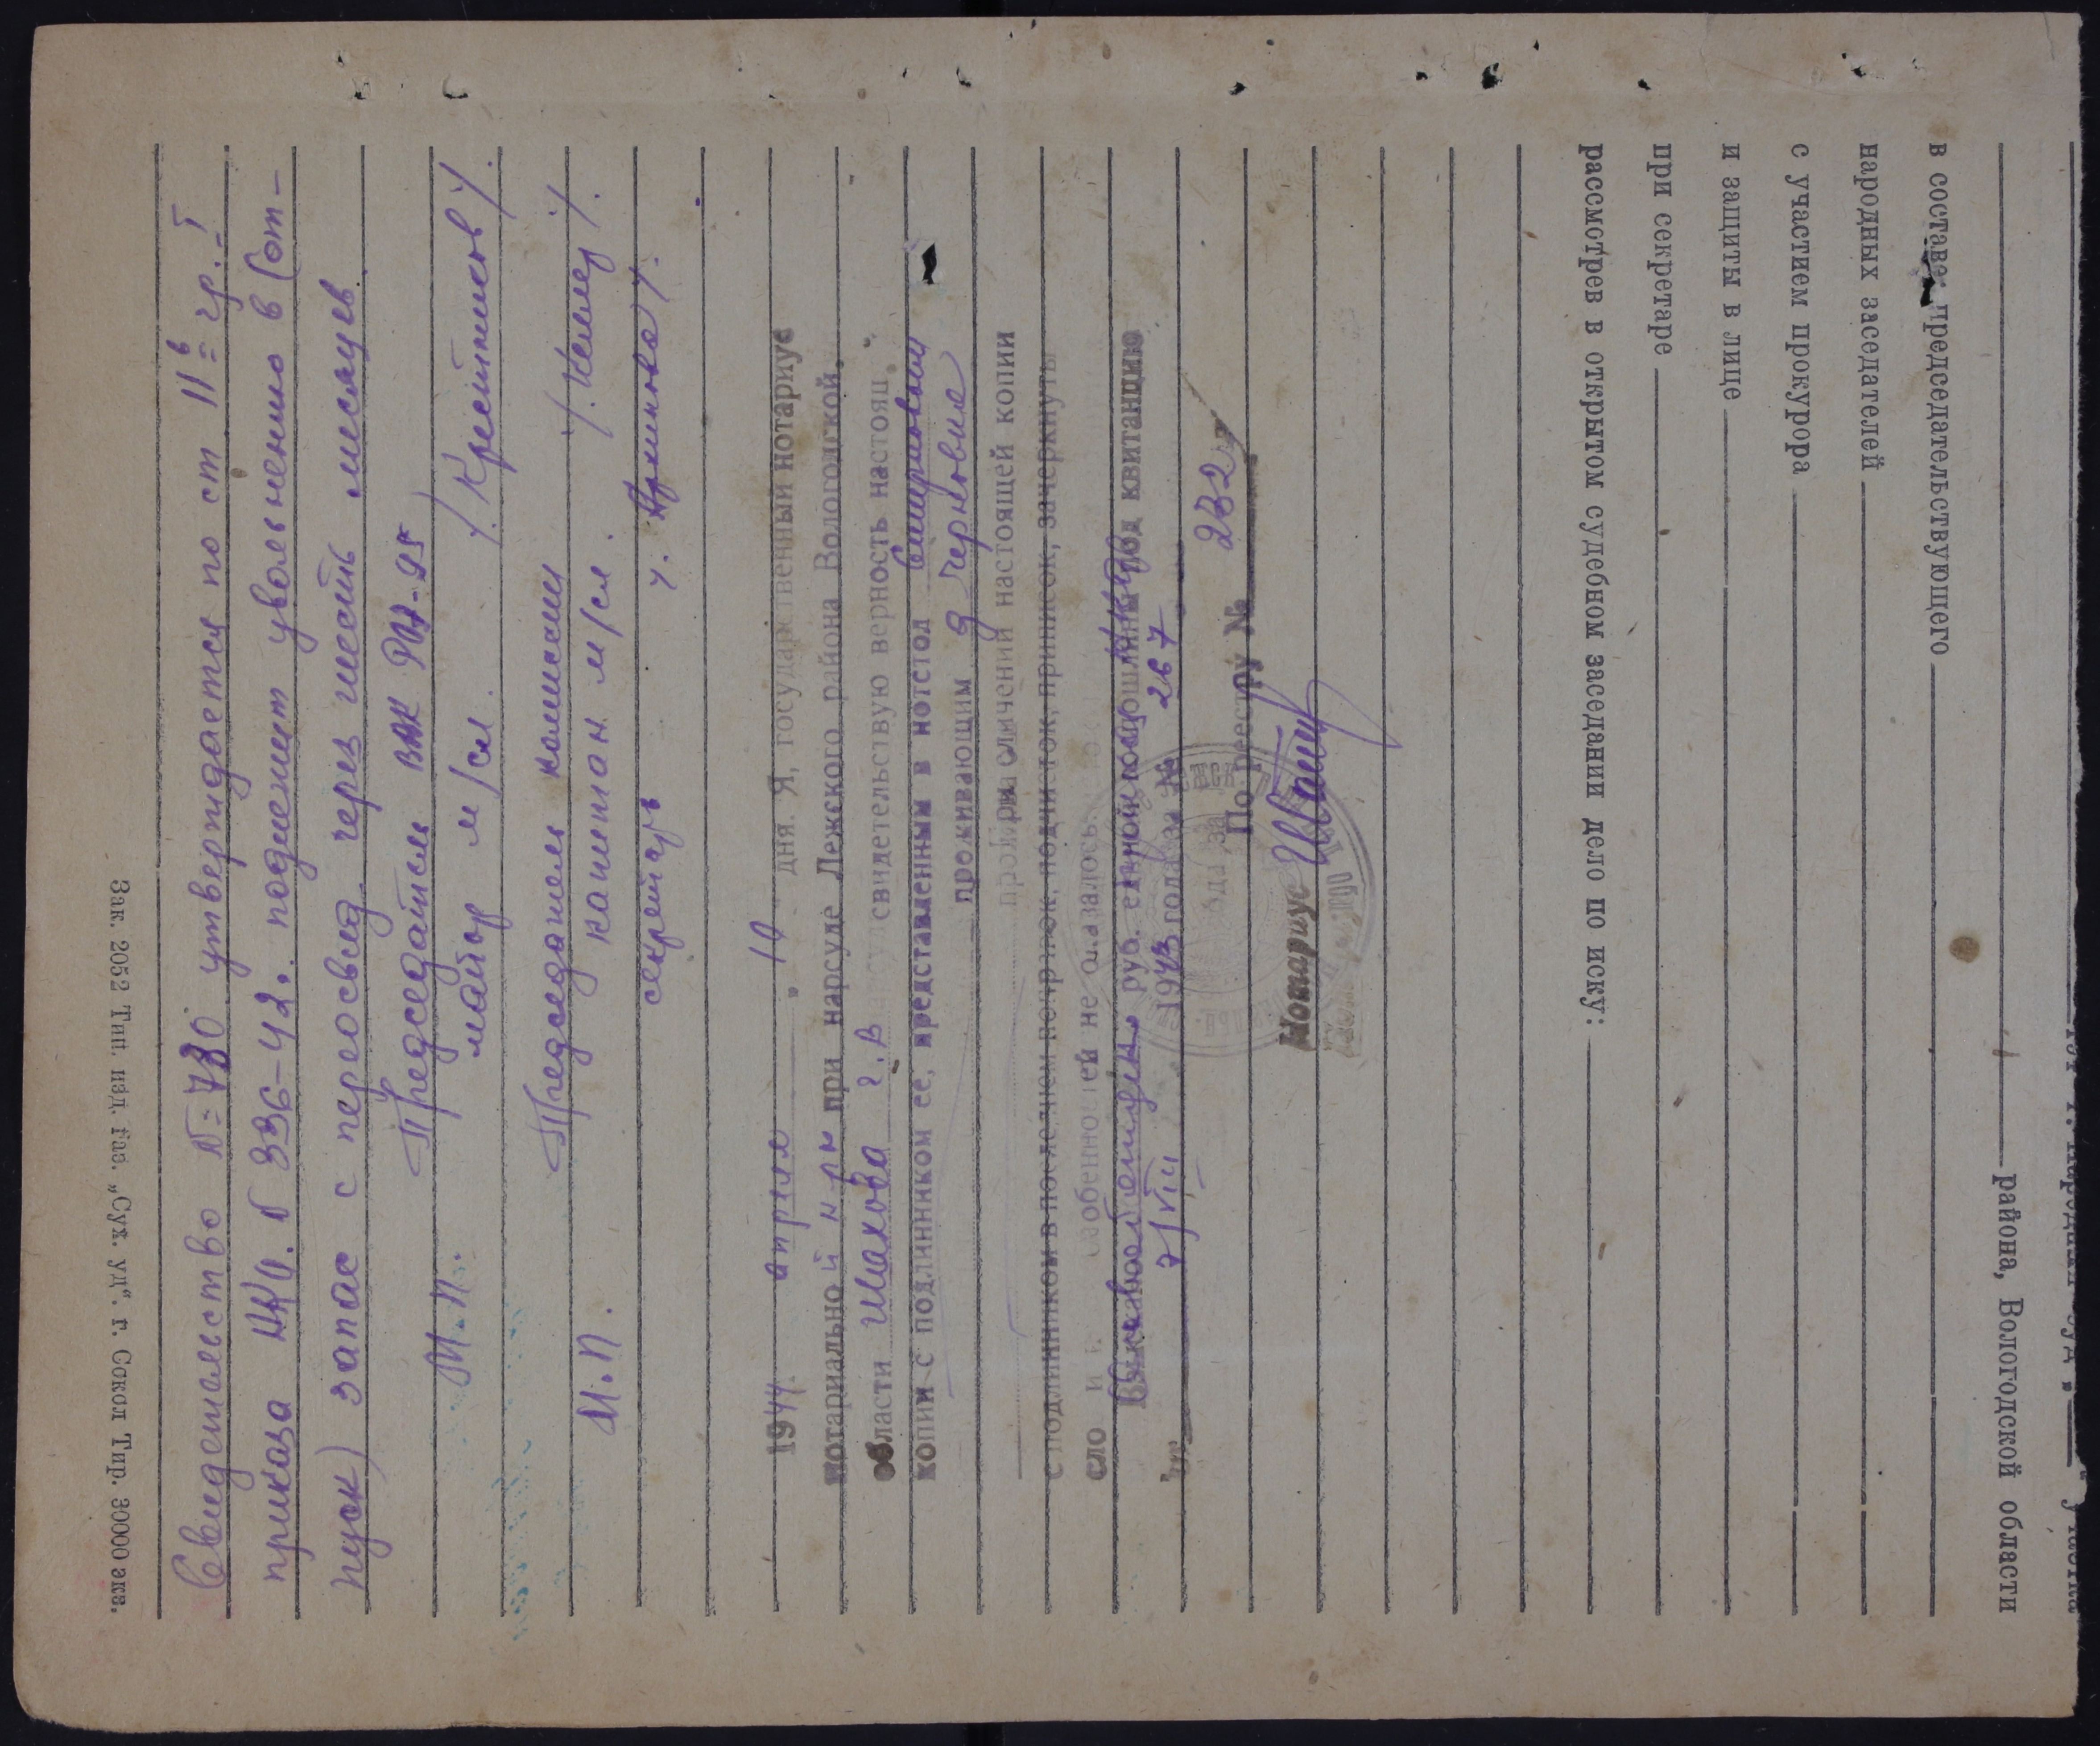 Свидетельство №=780 утверждается по ст 11в гр. I
приказа НКО. № 336-42. подлежит увольнению в (от-
пуск) запас с переосвид. через шесть месяцев
Председатель ВВК РЭГ-95
М.П. майор м/сл /. Крестников /.
Председатель комиссии
М.П. капитан м/сл. /. Келлер /.
секретарь
1944 апреля 10 дня. Я, государственный нотариус
нотариальной к-ры при нарсуде Лежского района Вологодской
области Шахова г.В свидетельствую верность настоящ.
копии с подлинником ее, представленным в нотстол Смирновой
проживающим д Черновие
при сличении настоящей копии
с подлинником в последнем подчисток, приписок, зачеркнутых
сло и особенностей не оказалось.
руб. единой госпошлины под квитанцию
7/VIII 1943 года за № 267
По реестру № 232
Нотариус
в составе председательствующего
народных заседателей
с участием прокурора
и защиты в лице
при секретаре
рассмотрев в открытом судебном заседании дело по иску:
района, Вологодской области
Зак. 2052 Тип. изд. газ. „Сух. уд“. г. Сокол Тир. 30000 экз.